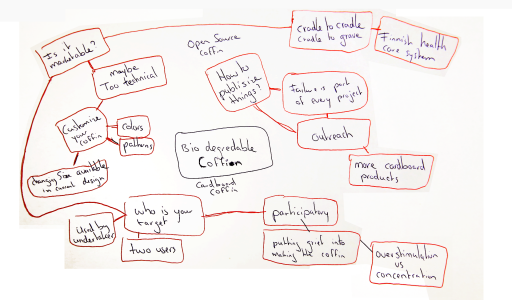 cradle to cradle
cradle to grave
Finnish health
care system
Is it
Open Source
coffin
maybe
Too technical
How to
publisize
things?
Failure is part
of every project
Customize
your
coffin
colors
patterns
outreach
Bio degredable
Coffion
Cardboard
coffin
more cardboard
products
changing size available
in current design
who is your
target
participatory
Used by
undertaker
two users
putting grief into
making the coffin
overstimulation
vs
concentration